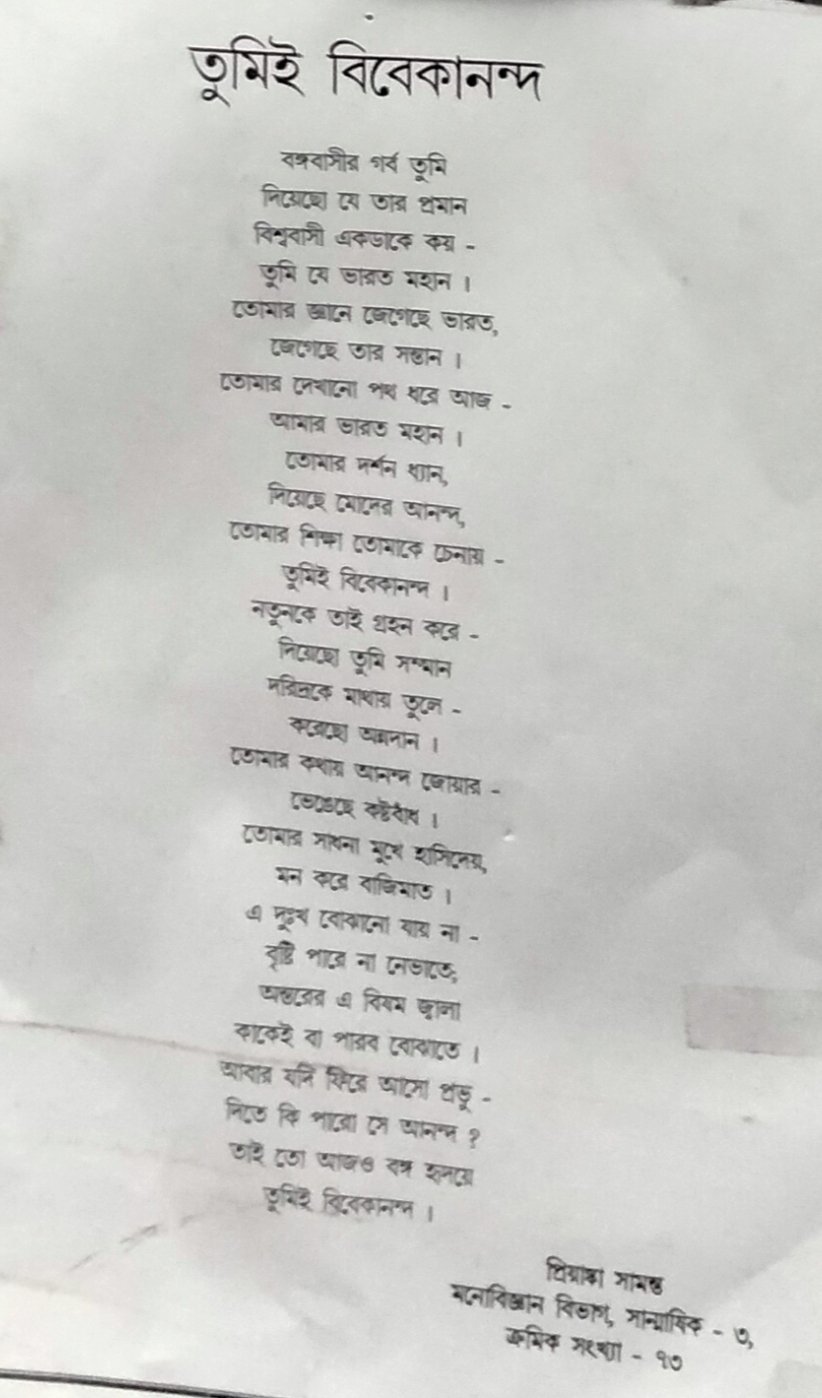 তুমিই বিবেকানন্দ
বঙ্গবাসীর গর্ব তুমি
দিয়েছো যে তার প্রমান
বিশ্ববাসী একডাকে কয় -
তুমি যে ভারত মহান ।
তোমার জ্ঞানে জেগেছে ভারত,
জেগেছে তার সন্তান ।
তোমার দেখানো পথ ধরে আজ -
আমার ভারত মহান ।
তোমার দর্শন ধ্যান,
দিয়েছে মোদের আনন্দ,
তোমার শিক্ষা তোমাকে চেনায় -
তুমিই বিবেকানন্দ ।
নতুনকে তাই গ্রহন করে -
দিয়েছো তুমি সম্মান
দরিদ্রকে মাথায় তুলে -
করেছো অন্নদান ।
তোমার কথায় আনন্দ জোয়ার -
ভেঙেছে কষ্টবাঁধ ।
তোমার সাধনা মুখে হাসিদেয়,
মন করে বাজিমাত ।
এ দুঃখ বোঝানো যায় না -
বৃষ্টি পারে না নেভাতে;
অন্তরের এ বিষম জ্বালা
কাকেই বা পারব বোঝাতে ।
আবার যদি ফিরে আসো প্রভু -
দিতে কি পারো সে আনন্দ ?
তাই তো আজও বঙ্গ হৃদয়ে
তুমিই বিবেকানন্দ ।
প্রিয়াঙ্কা সামন্ত
মনোবিজ্ঞান বিভাগ, সান্মাষিক - ৩,
ক্রমিক সংখ্যা - ৭৩